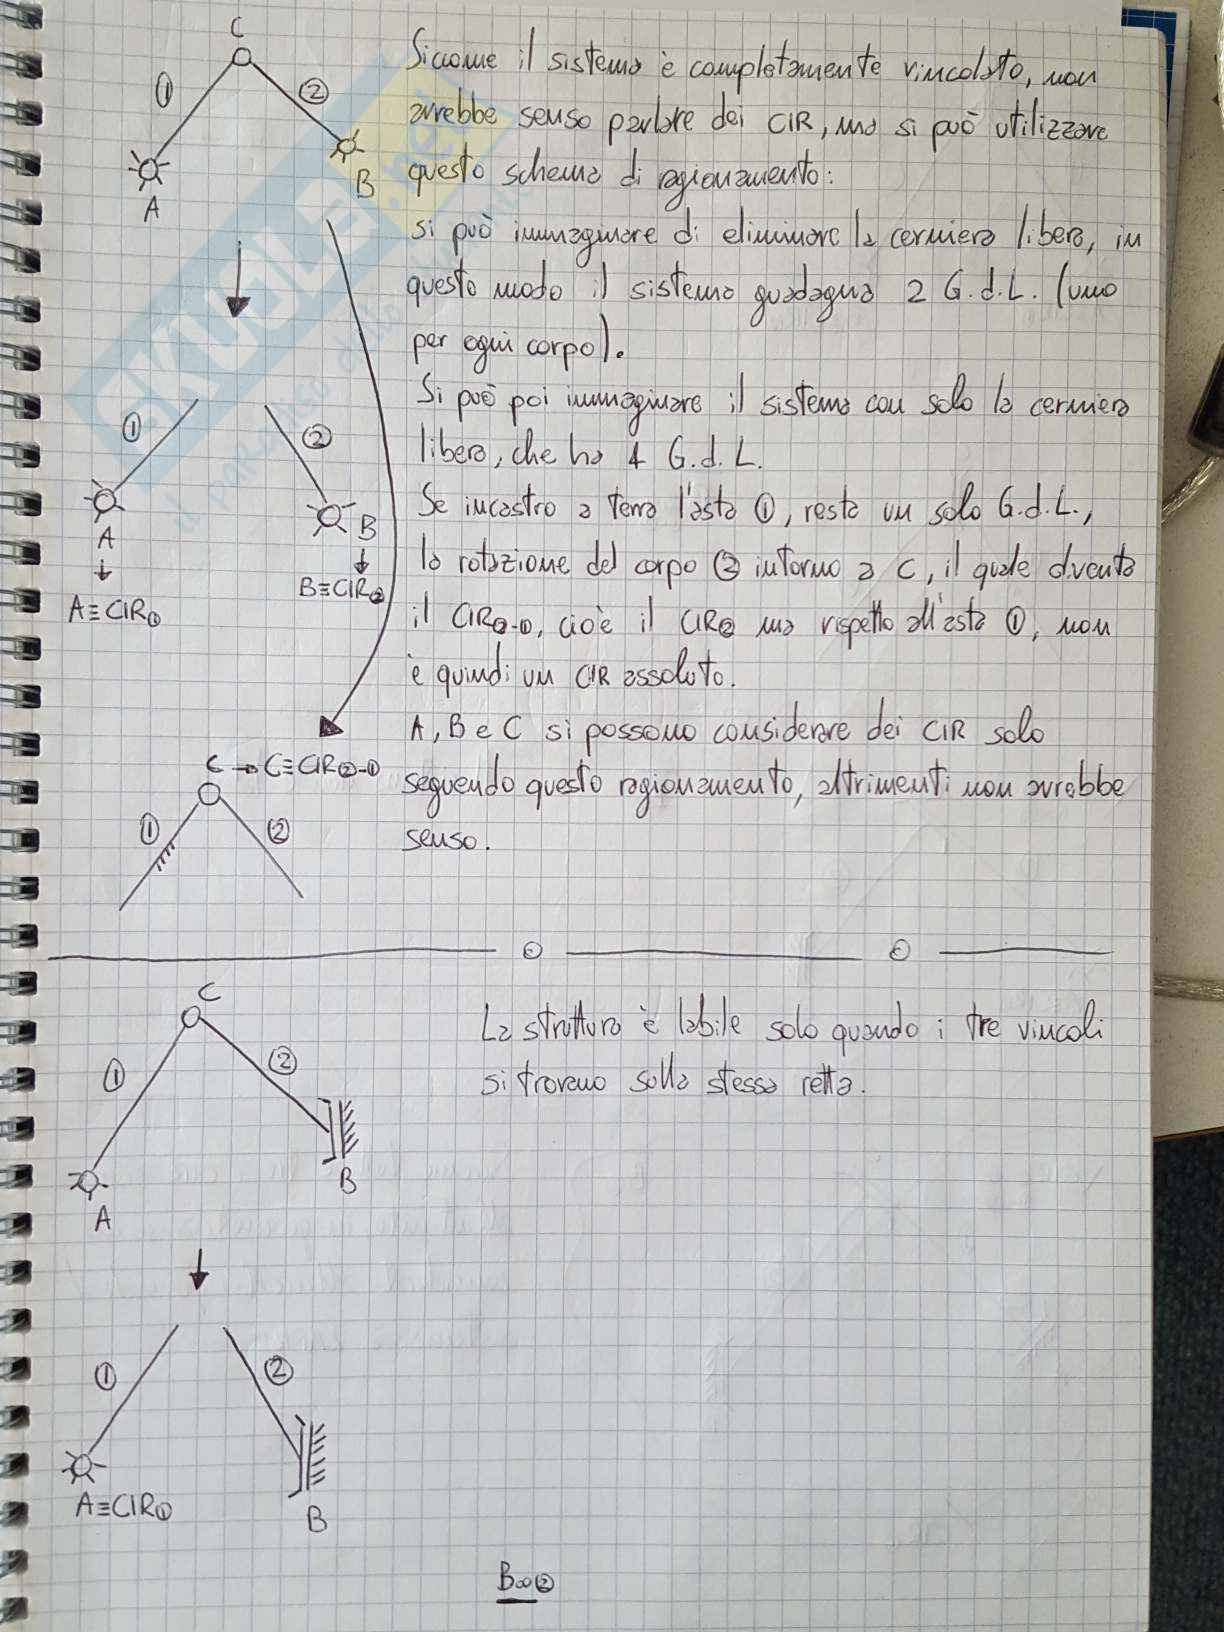 C
① ②
A
B
Siccome il sistema è completamente vincolato, non
avrebbe senso parlare dei CIR, ma si può utilizzare
questo schema di ragionamento:
si può immaginare di eliminare la cerniera libera, in
questo modo il sistema guadagna 2 G.d.L. (uno
per ogni corpo).
Si può poi immaginare il sistema con solo la cerniera
libera, che ha 4 G.d.L.
Se incastro a terra l'asta ①, resta un solo G.d.L.,
la rotazione del corpo ② intorno a C, il quale diventa
il CIR②-①, cioè il CIR② ma rispetto all'asta ①, non
è quindi un CIR assoluto.
A, B e C si possono considerare dei CIR solo
seguendo questo ragionamento, altrimenti non avrebbe
senso.
① ②
A
B
A≡CIR①
B≡CIR②
C → C≡CIR②-①
① ②
C
① ②
A
B
La struttura è labile solo quando i tre vincoli
si trovano sulla stessa retta.
① ②
A≡CIR①
B
B∞②
SKUOLA.net